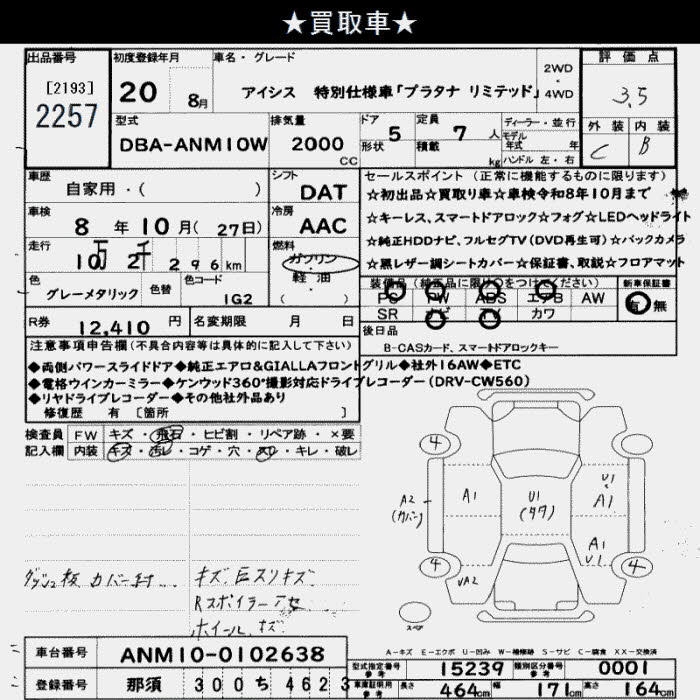 ★買取車★
出品番号
[2193]
2257
初度登録年月
20 8月
車名・グレード
アイシス 特別仕様車「プラタナ リミテッド」
2WD
・
4WD
評価点
3.5
外装 内装
C B
型式
DBA-ANM10W
排気量
2000
CC
ドア
5
形状
定員
7 人
積載
kg
ディーラー・並行
モデル
年式 年
ハンドル 左・右
車歴
自家用・( )
シフト
DAT
車検
8 年 10 月 ( 27日)
冷房
AAC
走行
10万 2千 296km
燃料
ガソリン
・
軽・油
( )
色
グレーメタリック
色替
色コード
1G2
R券
12,410 円
名変期限 月 日
セールスポイント (正常に機能するものに限ります)
☆初出品☆買取り車☆車検令和8年10月まで
☆キーレス、スマートドアロック☆フォグ☆LEDヘッドライト
☆純正HDDナビ、フルセグTV(DVD再生可)☆バックカメラ
☆黒レザー調シートカバー☆保証書、取説☆フロアマット
装備品(純正品に限り○をつけてください)
PS PW ABS エアB AW
SR ナビ TV カワ
新車保証書
有・無
後日品
B-CASカード、スマートドアロックキー
注意事項申告欄(不具合内容等は具体的に記入して下さい)
◆両側パワースライドドア◆純正エアロ&GIALLAフロントグリル◆社外16AW◆ETC
◆電格ウインカーミラー◆ケンウッド360°撮影対応ドライブレコーダー(DRV-CW560)
◆リヤドライブレコーダー◆その他社外品あり
修復歴 有 [箇所 ]
検査員 FW キズ・飛石・ヒビ割・リペア跡・×要
記入欄 内装 キズ・汚レ・コゲ・穴・スリ・キレ・破レ
4
A2
(カバー)
A1
U1
(タワ)
U1
A1
A1
U1
4
4
UA2
スペア
ダッシュ板 カバー封
キズ 巨スリキズ
Rスポイラーアセ
ホイール キズ
A-キズ E-エクボ U-凹み W-補修跡 S-サビ C-腐食 XX-交換済
車台番号 ANM10-0102638
型式指定番号
参考
15239
類別区分番号
参考
0001
登録番号 那須 300 ち 4623
車庫証明用
参考
長さ 464cm 幅 171cm 高さ 164cm